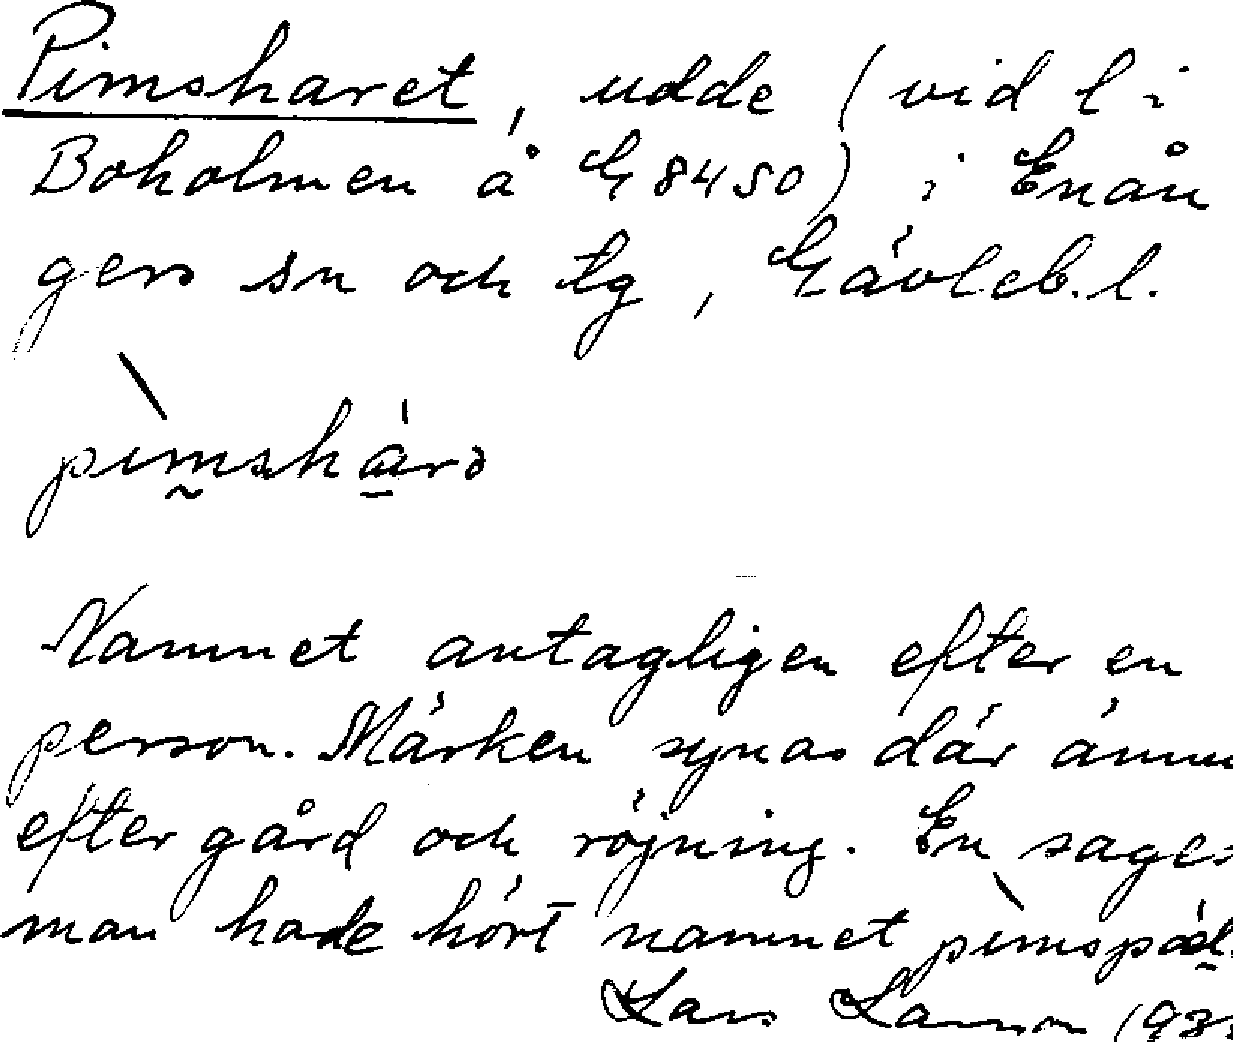 Pimsharet, udde (vid l i
Boholmen å G 8450) i Enån
gers sn och tg, Gävleb. l.
pimsharə
Namnet antagligen efter en
person. Märken synas där ännu
efter gård och röjning. En sages
man hade hört namnet
Lars Larsson 193